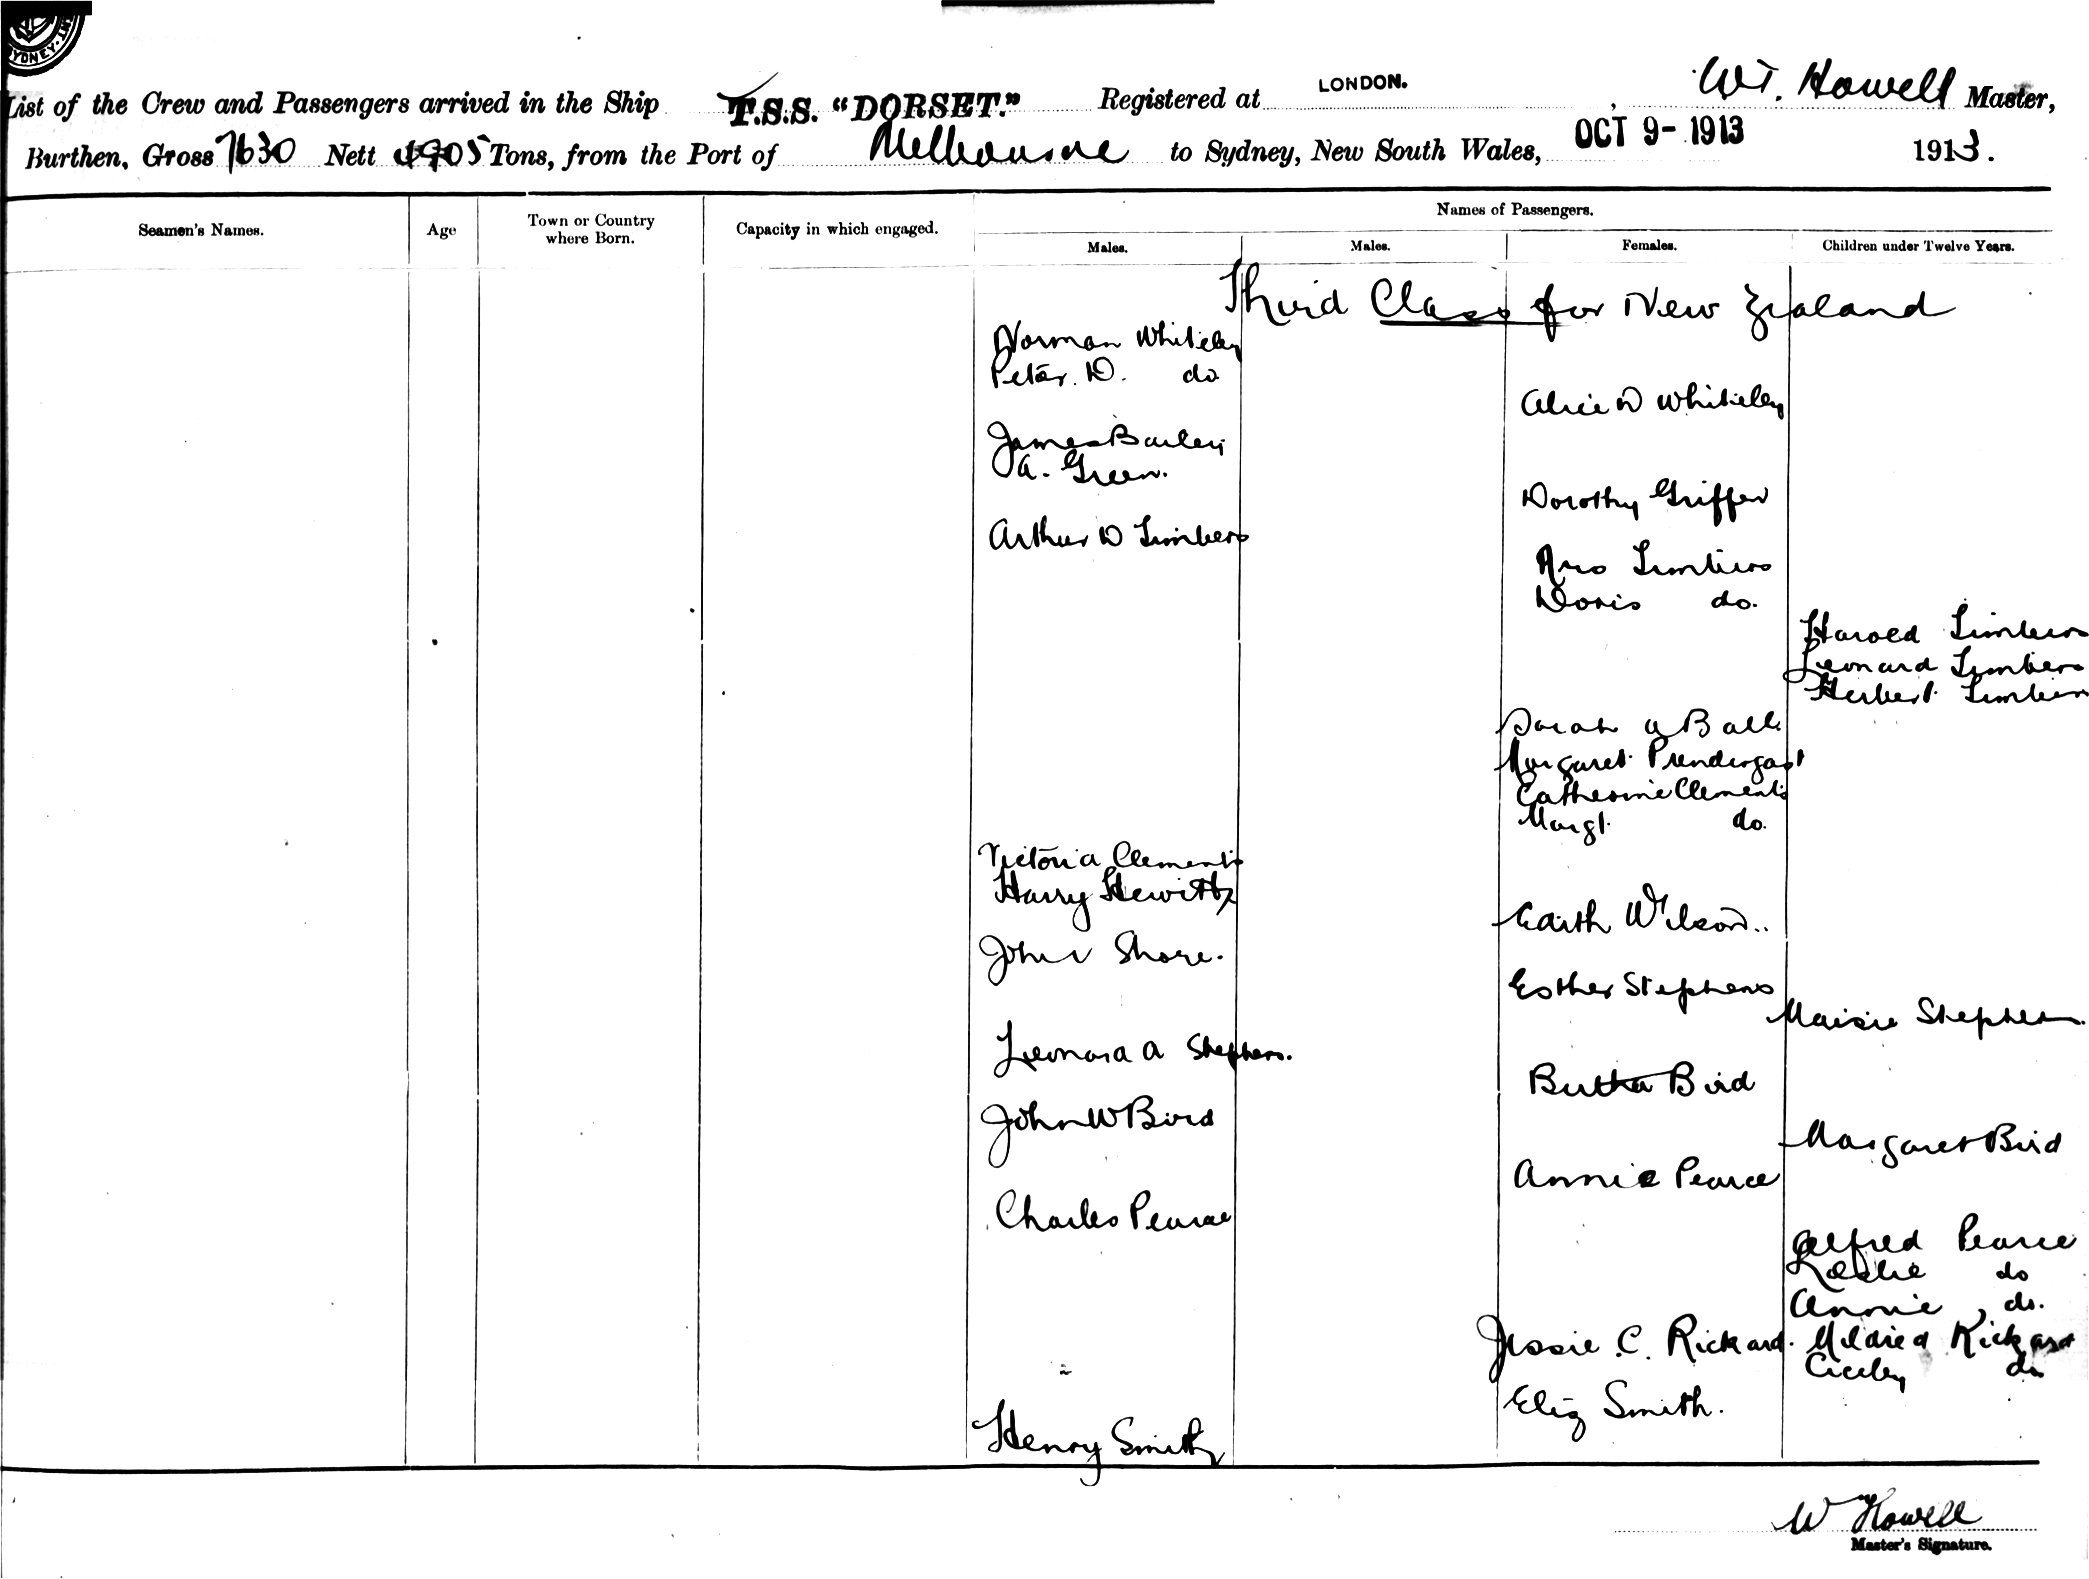 SYDNEY
List of the Crew and Passengers arrived in the Ship T.S.S. "DORSET." Registered at LONDON., WT. Howell Master,
Burthen, Gross 7630 Nett 4905 Tons, from the Port of Melbourne to Sydney, New South Wales, OCT 9- 1913 1913.
Names of Passengers.
Seamen's Names. Age Town or Country where Born. Capacity in which engaged.
Males. Males. Females. Children under Twelve Years.
Third Class for New Zealand
Norman Whiteley
Peter D. do
Alice D Whiteley
James Bailey
A. Green.
Dorothy Griffen
Arthur D Limbers
Mrs Limbers
Doris do.
Harold Limbers
Leonard Limbers
Herbert Limbers
Sarah A Ball
Margaret Prendergast
Catherine Clements
Margt. do.
Victoria Clements
Harry Hewitt
Edith Wilson..
John Shore.
Esther Stephens
Maisie Stephens.
Leonora A Stephens.
Bertha Bird
John W Bird
Margaret Bird
Annie Pearce
Charles Pearce
Alfred Pearce
Leslie do
Annie, do.
Jessie C. Rickard. Mildred Rickard
Cicely do
Eliz Smith.
Henry Smith
W Howell
Master's Signature.